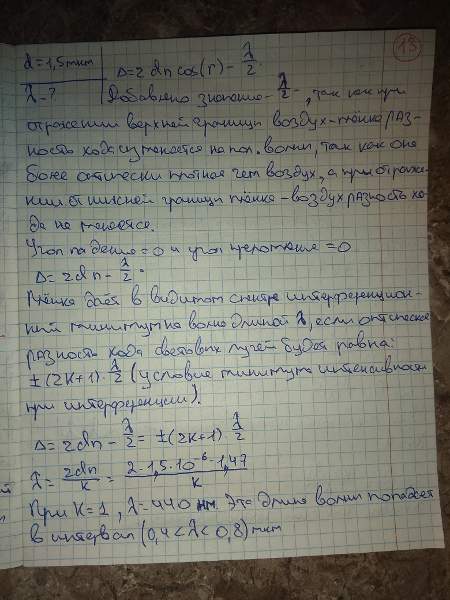 13
d = 1,5 мкм
Δ = 2dn cos(r) − λ/2
λ − ?
Добавлено значение − λ/2, так как при
отражении верхней границы воздух-плёнка раз-
ность хода изменяется на пол. волны, так как она
более оптически плотная чем воздух, а при отраже-
нии от нижней границы плёнка – воздух разность хо-
да не меняется.
Угол падения = 0 и угол преломления = 0
Δ = 2dn − λ/2.
Плёнка даёт в видимом спектре интерференцион-
ный минимум на волне длиной λ, если оптическая
разность хода световых лучей будет равна:
±(2k+1)·λ/2 (условие минимума интенсивности
при интерференции).
Δ = 2dn − λ/2 = ±(2k+1)·λ/2
λ = 2dn/k = 2·1,5·10⁻⁶·1,47/k
При k=1, λ=440 нм. Эта длина волны попадает
в интервал (0,4<λ<0,8) мкм